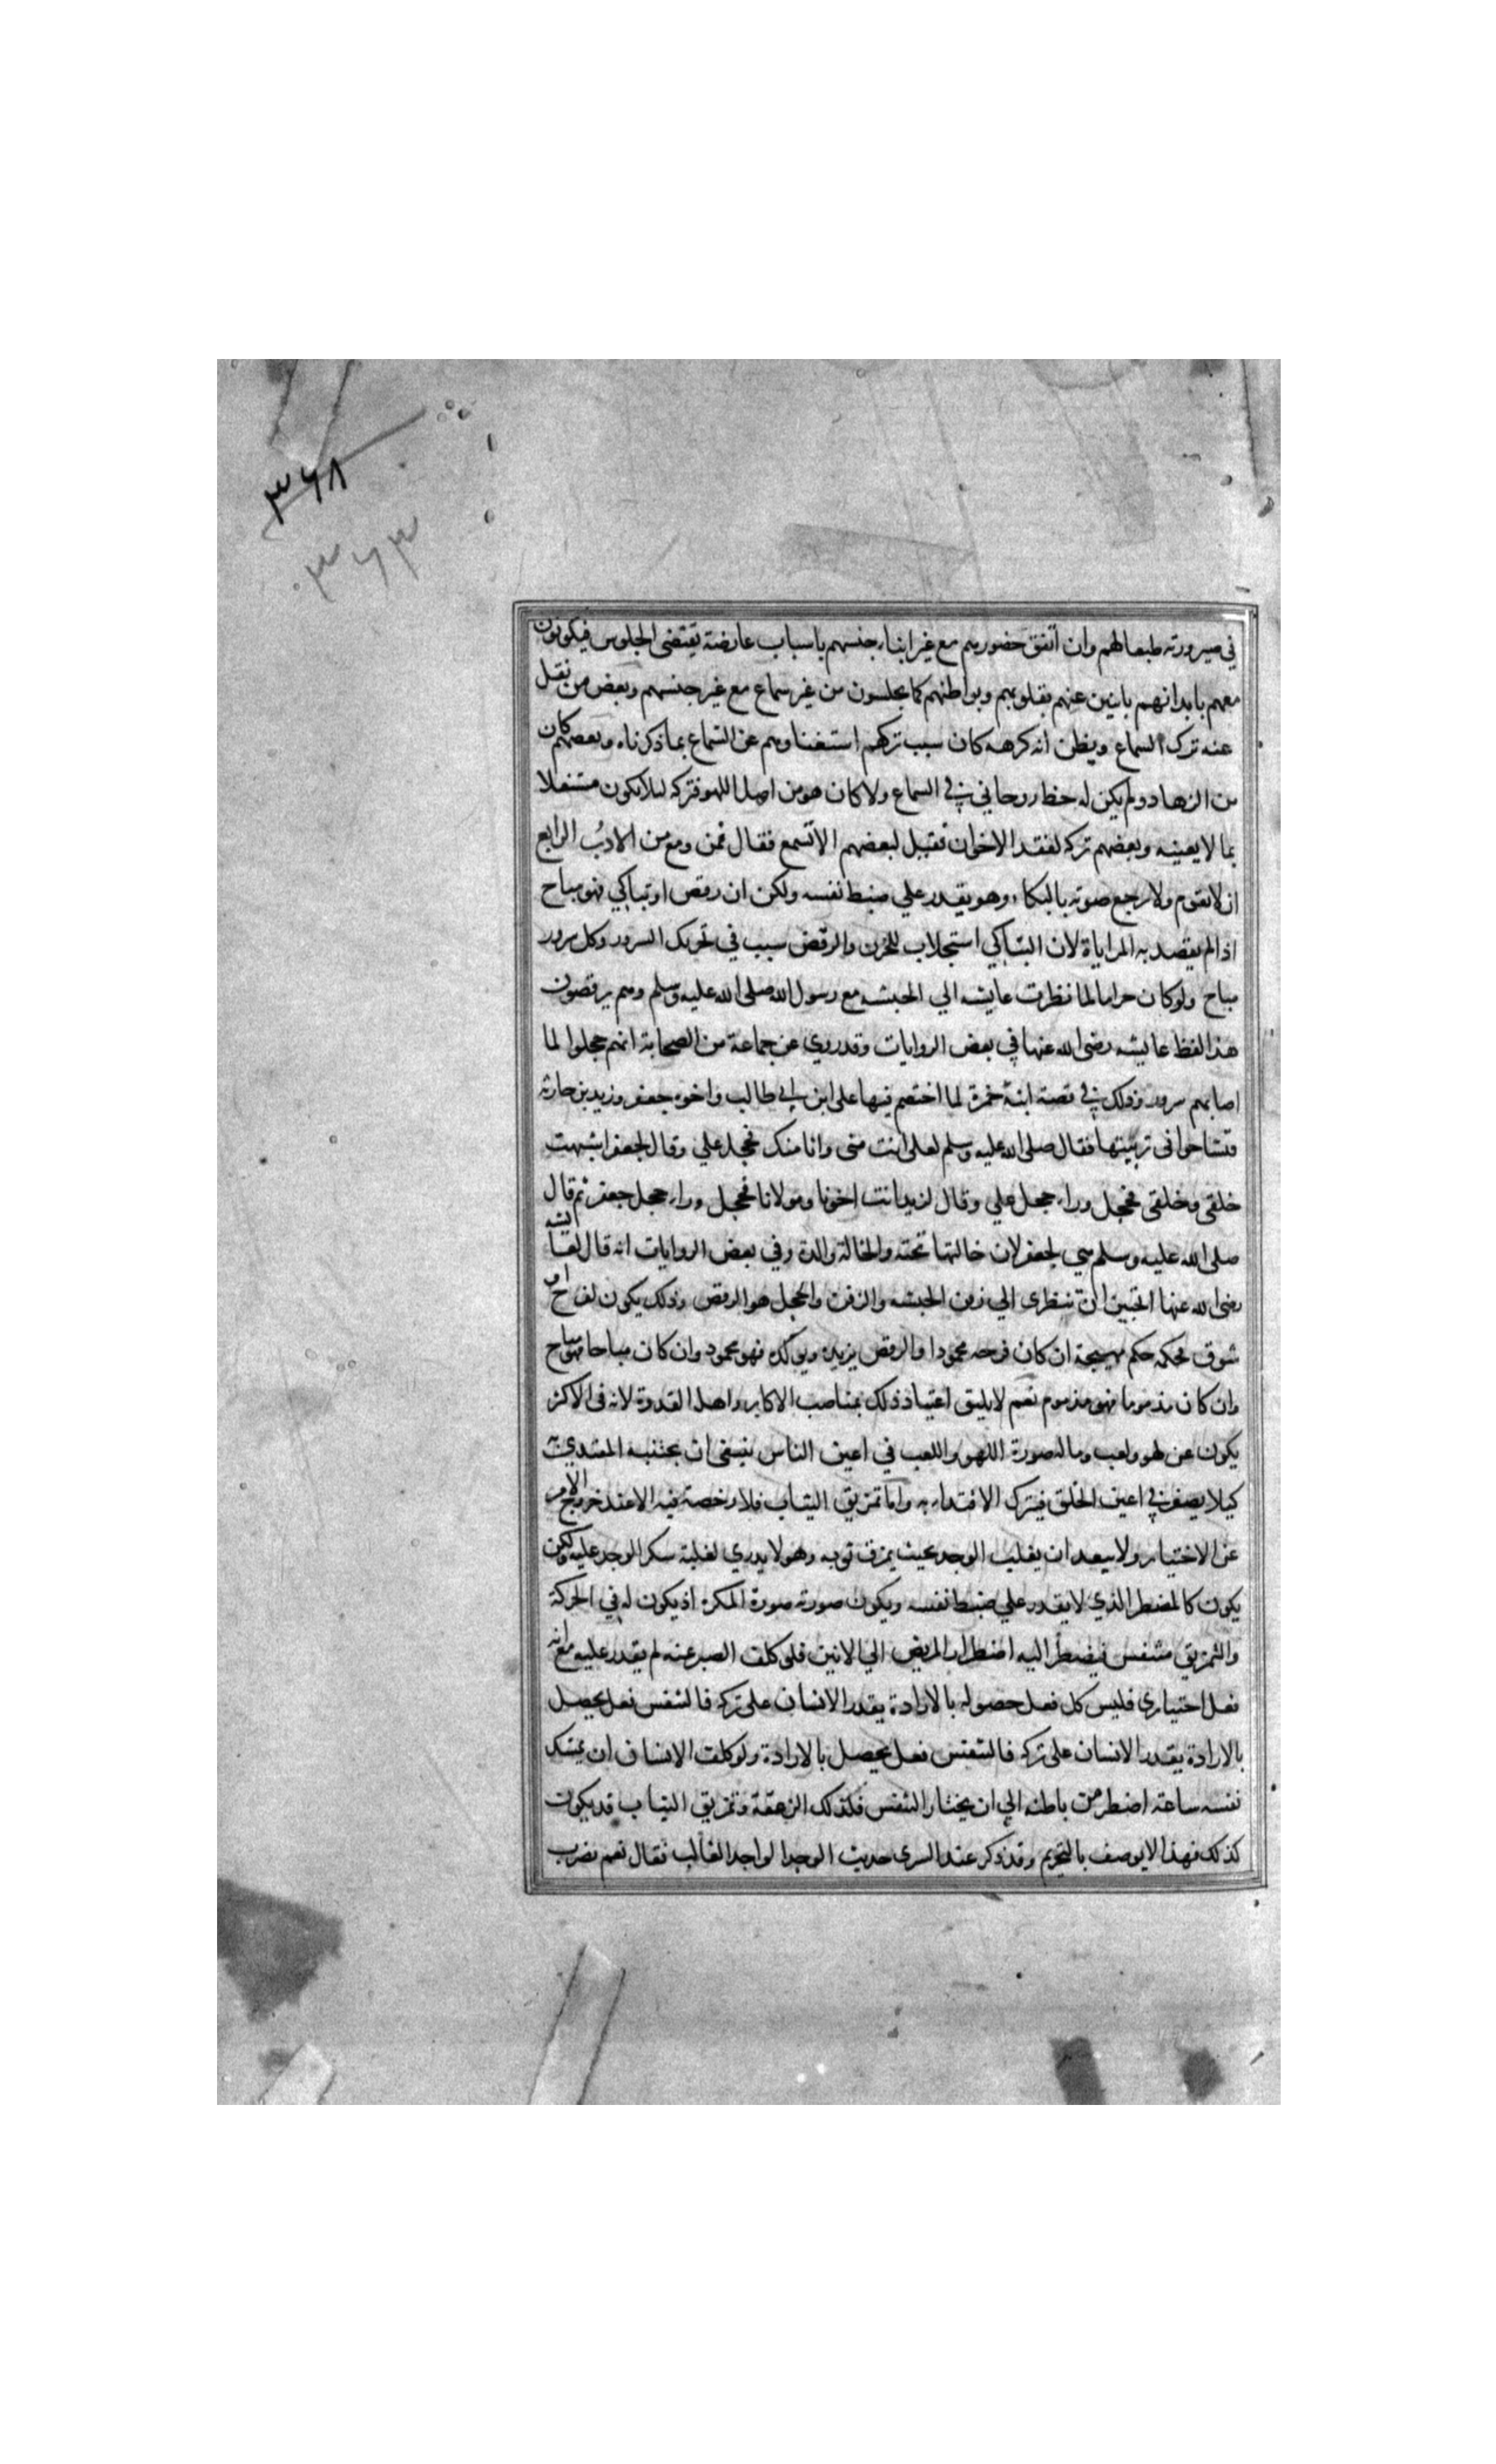 ٣٦٨
٣٦٣
في صيرورته طبعا لهم وان اتفق حضورهم مع غير ابناء جنسهم باسباب عارضة تقتضى الجلوس فيكونون
معهم بابدانهم باينين عنهم بقلوبهم وبواطنهم كما يجلسون من غير سماع مع غير جنسهم وبعض من نقل
عنه ترك السماع ويظن انه كرهه كان سبب تركهم استغناوهم عن السماع بما ذكرناه وبعضهم كان
من الزهاد ولم يكن له حظ روحاني في السماع ولا كان هو من اهل اللهو فتركه ليلا يكون مشتغلا
بما لا يعنيه وبعضهم تركه لفقد الاخوان فقيل لبعضهم الا تسمع فقال فمن ومع من الادب الرابع
ان لا يقوم ولا يرجع صوته بالبكاء وهو يقدر علي ضبط نفسه ولكن ان رقص او تباكي فهو مباح
اذا لم يقصد به المراياة لان التباكي استجلاب للحزن والرقص سبب في تحريك السرور وكل سرور
مباح ولو كان حراما لما نظرت عايشه الي الحبشه مع رسول الله صلى الله عليه وسلم وهم يرقصون
هذا لفظ عايشه رضى الله عنها في بعض الروايات وقد روي عن جماعة من الصحابة انهم حجلوا لما
اصابهم سرور وذلك في قصة ابنة حمزة لما اختصم فيها على ابن ابي طالب واخوه جعفر وزيد بن حارثه
فتشاحوا فى تربيتها فقال صلى الله عليه وسلم لعلى انت منى وانا منك فحجل علي وقال لجعفر اشبهت
خلقى وخلقى فحجل وراء حجل علي وقال لزيد انت اخونا ومولانا فحجل وراء حجل جعفر ثم قال
صلى الله عليه وسلم هي لجعفر لان خالتها تحته والخالة والدة وفي بعض الروايات انه قال لعايشه
رضى الله عنها اتحبين ان تنظرى الي زفن الحبشه والزفن والحجل هو الرقص وذلك يكون لفرح او
شوق فحكمه حكم مهيجة ان كان فرحه محمودا والرقص يزيده ويوكده فهو محمود وان كان مباحا فهو مباح
وان كان مذموما فهو مذموم نعم لا يليق اعتياد ذلك بمناصب الاكابر واهل القدوة لانه فى الاكثر
يكون عن لهو ولعب وما له صورة اللهو واللعب في اعين الناس ينبغى ان يجتنبه المقتدي به
كيلا يصغر في اعين الخلق فيترك الاقتداء به واما تمزيق الثياب فلا رخصة فيه الا عند خروج الامر
عن الاختيار ولا يبعد ان يغلب الوجد بحيث يمزق ثوبه وهو لا يدري لغلبة سكر الوجد عليه ولكن
يكون كالمضطر الذي لا يقدر علي ضبط نفسه ويكون صورته صورة المكره اذ يكون له في الحركة
والتمزيق متنفس فيضطر اليه اضطرار المريض الي الانين فلو كلف الصبر عنه لم يقدر عليه مع انه
فعل اختيارى فليس كل فعل حصوله بالارادة يقدر الانسان على تركه فالتنفس فعل يحصل
بالارادة يقدر الانسان على تركه فالتنفس فعل يحصل بالارادة ولو كلف الانسان ان يمسك
نفسه ساعة اضطر من باطنه الي ان يختار التنفس فكذلك الزعقة وتمزيق الثياب قد يكون
كذلك فهذا لا يوصف بالتحريم وقد ذكر عند السرى حديث الوجد الواجد الغالب فقال نعم يضرب